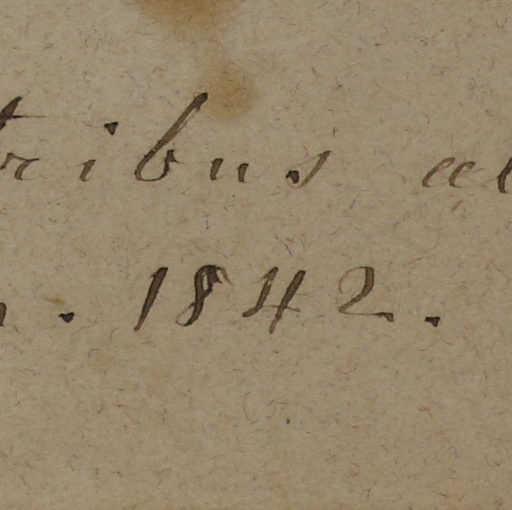 tribus al
. 1842.